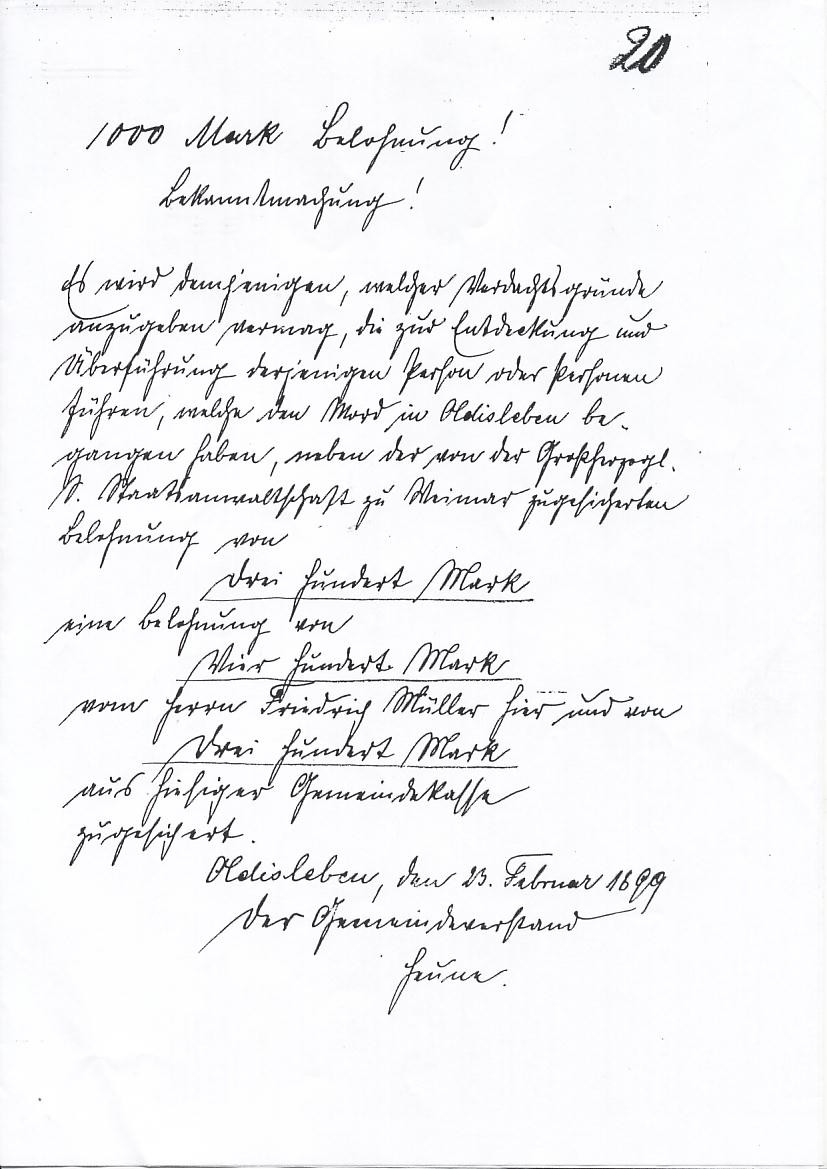 20
1000 Mark Belohnung!
Bekanntmachung!
Es wird demjenigen, welcher Verdachtsgründe
anzugeben vermag, die zur Entdeckung und
Überführung derjenigen Person oder Personen
führen, welche den Mord in Oldisleben be-
gangen haben, neben der von der Großherzogl.
S. Staatsanwaltschaft zu Weimar zugesicherten
Belohnung von
Drei hundert Mark
eine Belohnung von
Vier hundert Mark
vom Herrn Friedrich Müller hier und von
Drei hundert Mark
aus hiesiger Gemeindekasse
zugesichert.
Oldisleben, den 23. Februar 1899
Der Gemeindevorstand
Heune.